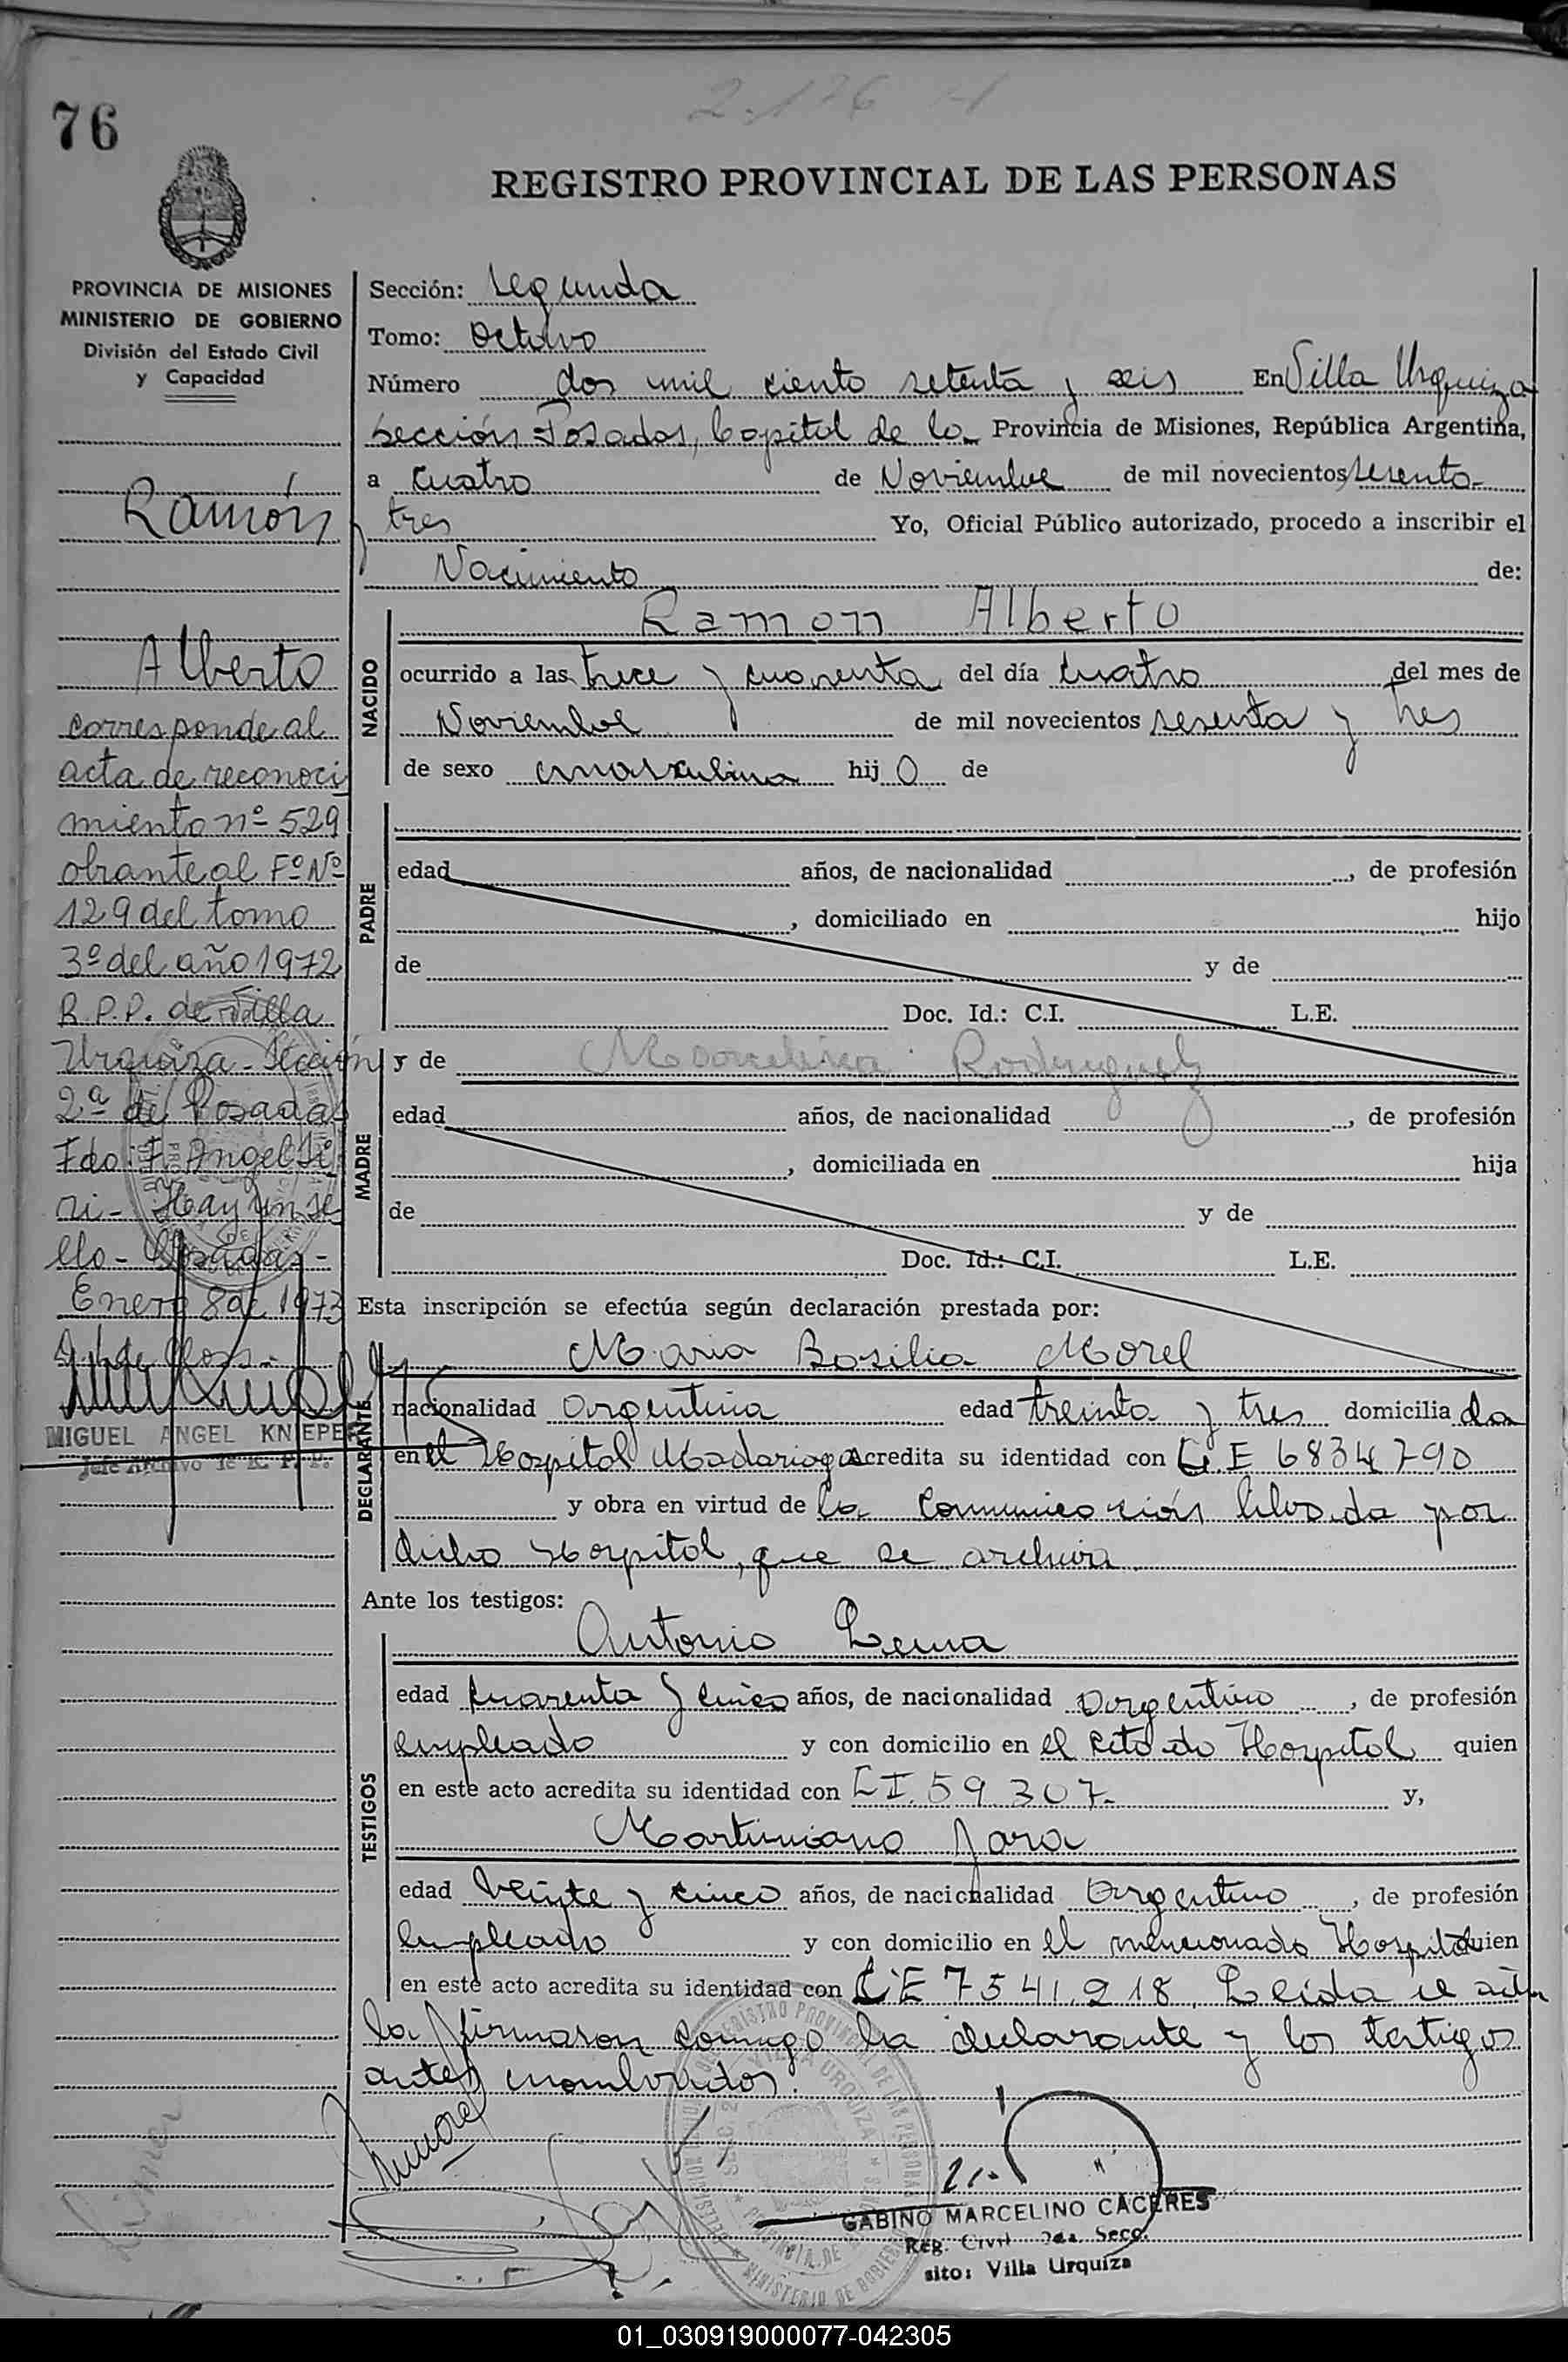 76
REGISTRO PROVINCIAL DE LAS PERSONAS
PROVINCIA DE MISIONES
MINISTERIO DE GOBIERNO
División del Estado Civil
y Capacidad
Ramón
Alberto
corresponde al
acta de reconoci
miento nº 529
obrante al Fº Nº
129 del tomo
3º del año 1972
R.P.P. de Villa
Urquiza - Sección
2ª de Posadas
Fdo: F. Angel Si
ri - Hay un se
llo - Posadas -
Enero 8 de 1973
MIGUEL ANGEL KNIEPER
Jefe Archivo de R. P. P.
Sección: Segunda
Tomo: Octavo
Número dos mil ciento setenta y seis En Villa Urquiza
Sección Posadas, Capital de la Provincia de Misiones, República Argentina,
a cuatro de Noviembre de mil novecientos sesenta
y tres Yo, Oficial Público autorizado, procedo a inscribir el
Nacimiento de:
NACIDO
Ramon Alberto
ocurrido a las trece y cuarenta del día cuatro del mes de
Noviembre de mil novecientos sesenta y tres
de sexo masculino hij o de
PADRE
edad años, de nacionalidad , de profesión
, domiciliado en hijo
de y de
Doc. Id.: C.I. L.E.
MADRE
y de Marcelina Rodriguez
edad años, de nacionalidad , de profesión
, domiciliada en hija
de y de
Doc. Id.: C.I. L.E.
Esta inscripción se efectúa según declaración prestada por:
DECLARANTE
Maria Basilia Morel
nacionalidad argentina edad treinta y tres domicilia da
en el Hospital Madariaga acredita su identidad con L.E 6834790
y obra en virtud de la comunicación librada por
dicho Hospital, que se archiva
Ante los testigos:
TESTIGOS
Antonio Lema
edad cuarenta y cinco años, de nacionalidad argentino , de profesión
empleado y con domicilio en el citado Hospital quien
en este acto acredita su identidad con C.I. 59.307.- y,
Martiniano Jara
edad veinte y cinco años, de nacionalidad Argentino , de profesión
empleado y con domicilio en el mencionado Hospital quien
en este acto acredita su identidad con L.E 7541.218. Leida el acta
la firmaron conmigo la declarante y los testigos
antes nombrados.
GABINO MARCELINO CACERES
Reg. Civil 2da. Secc.
sito: Villa Urquiza
01_030919000077-042305